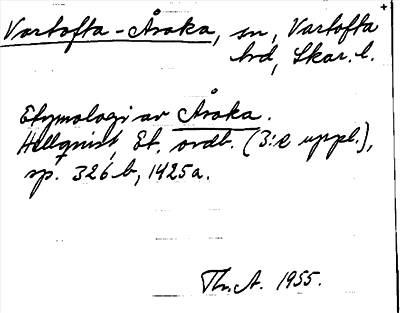 Vartofta-Åsaka, sn, Vartofta
hd, Skar. l.
Etymologi av Åsaka.
Hellquist, Et. ordb. (3:e uppl.),
sp. 326 b, 1425 a.
Th. A. 1955.